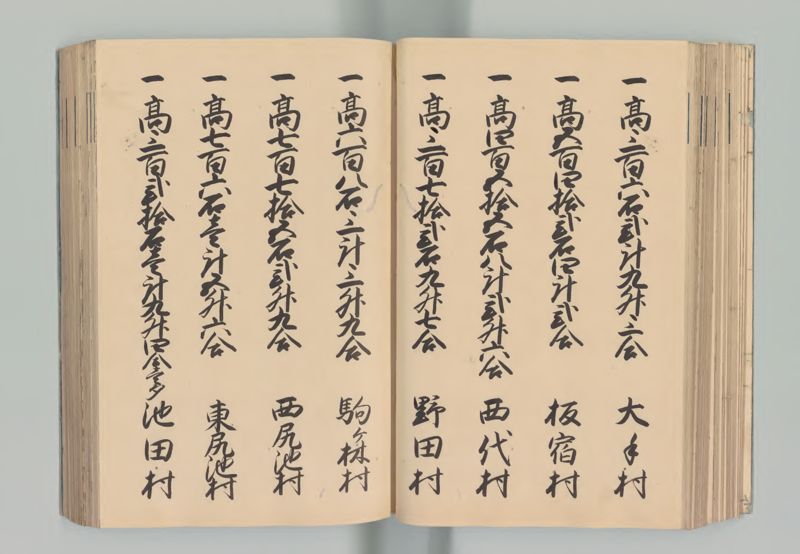 一高三百六石弐斗九升三合 大手村
一高五百四拾弐石四斗弐合 板宿村
一高四百五拾五石八斗弐升六合 西代村
一高三百七拾弐石九升七合 野田村
一高六百八石三斗三升九合 駒ヶ林村
一高七百七拾五石弐升九合 西尻池村
一高七百六石壱斗五升六合 東尻池村
一高三百弐拾石壱斗九升四合 池田村